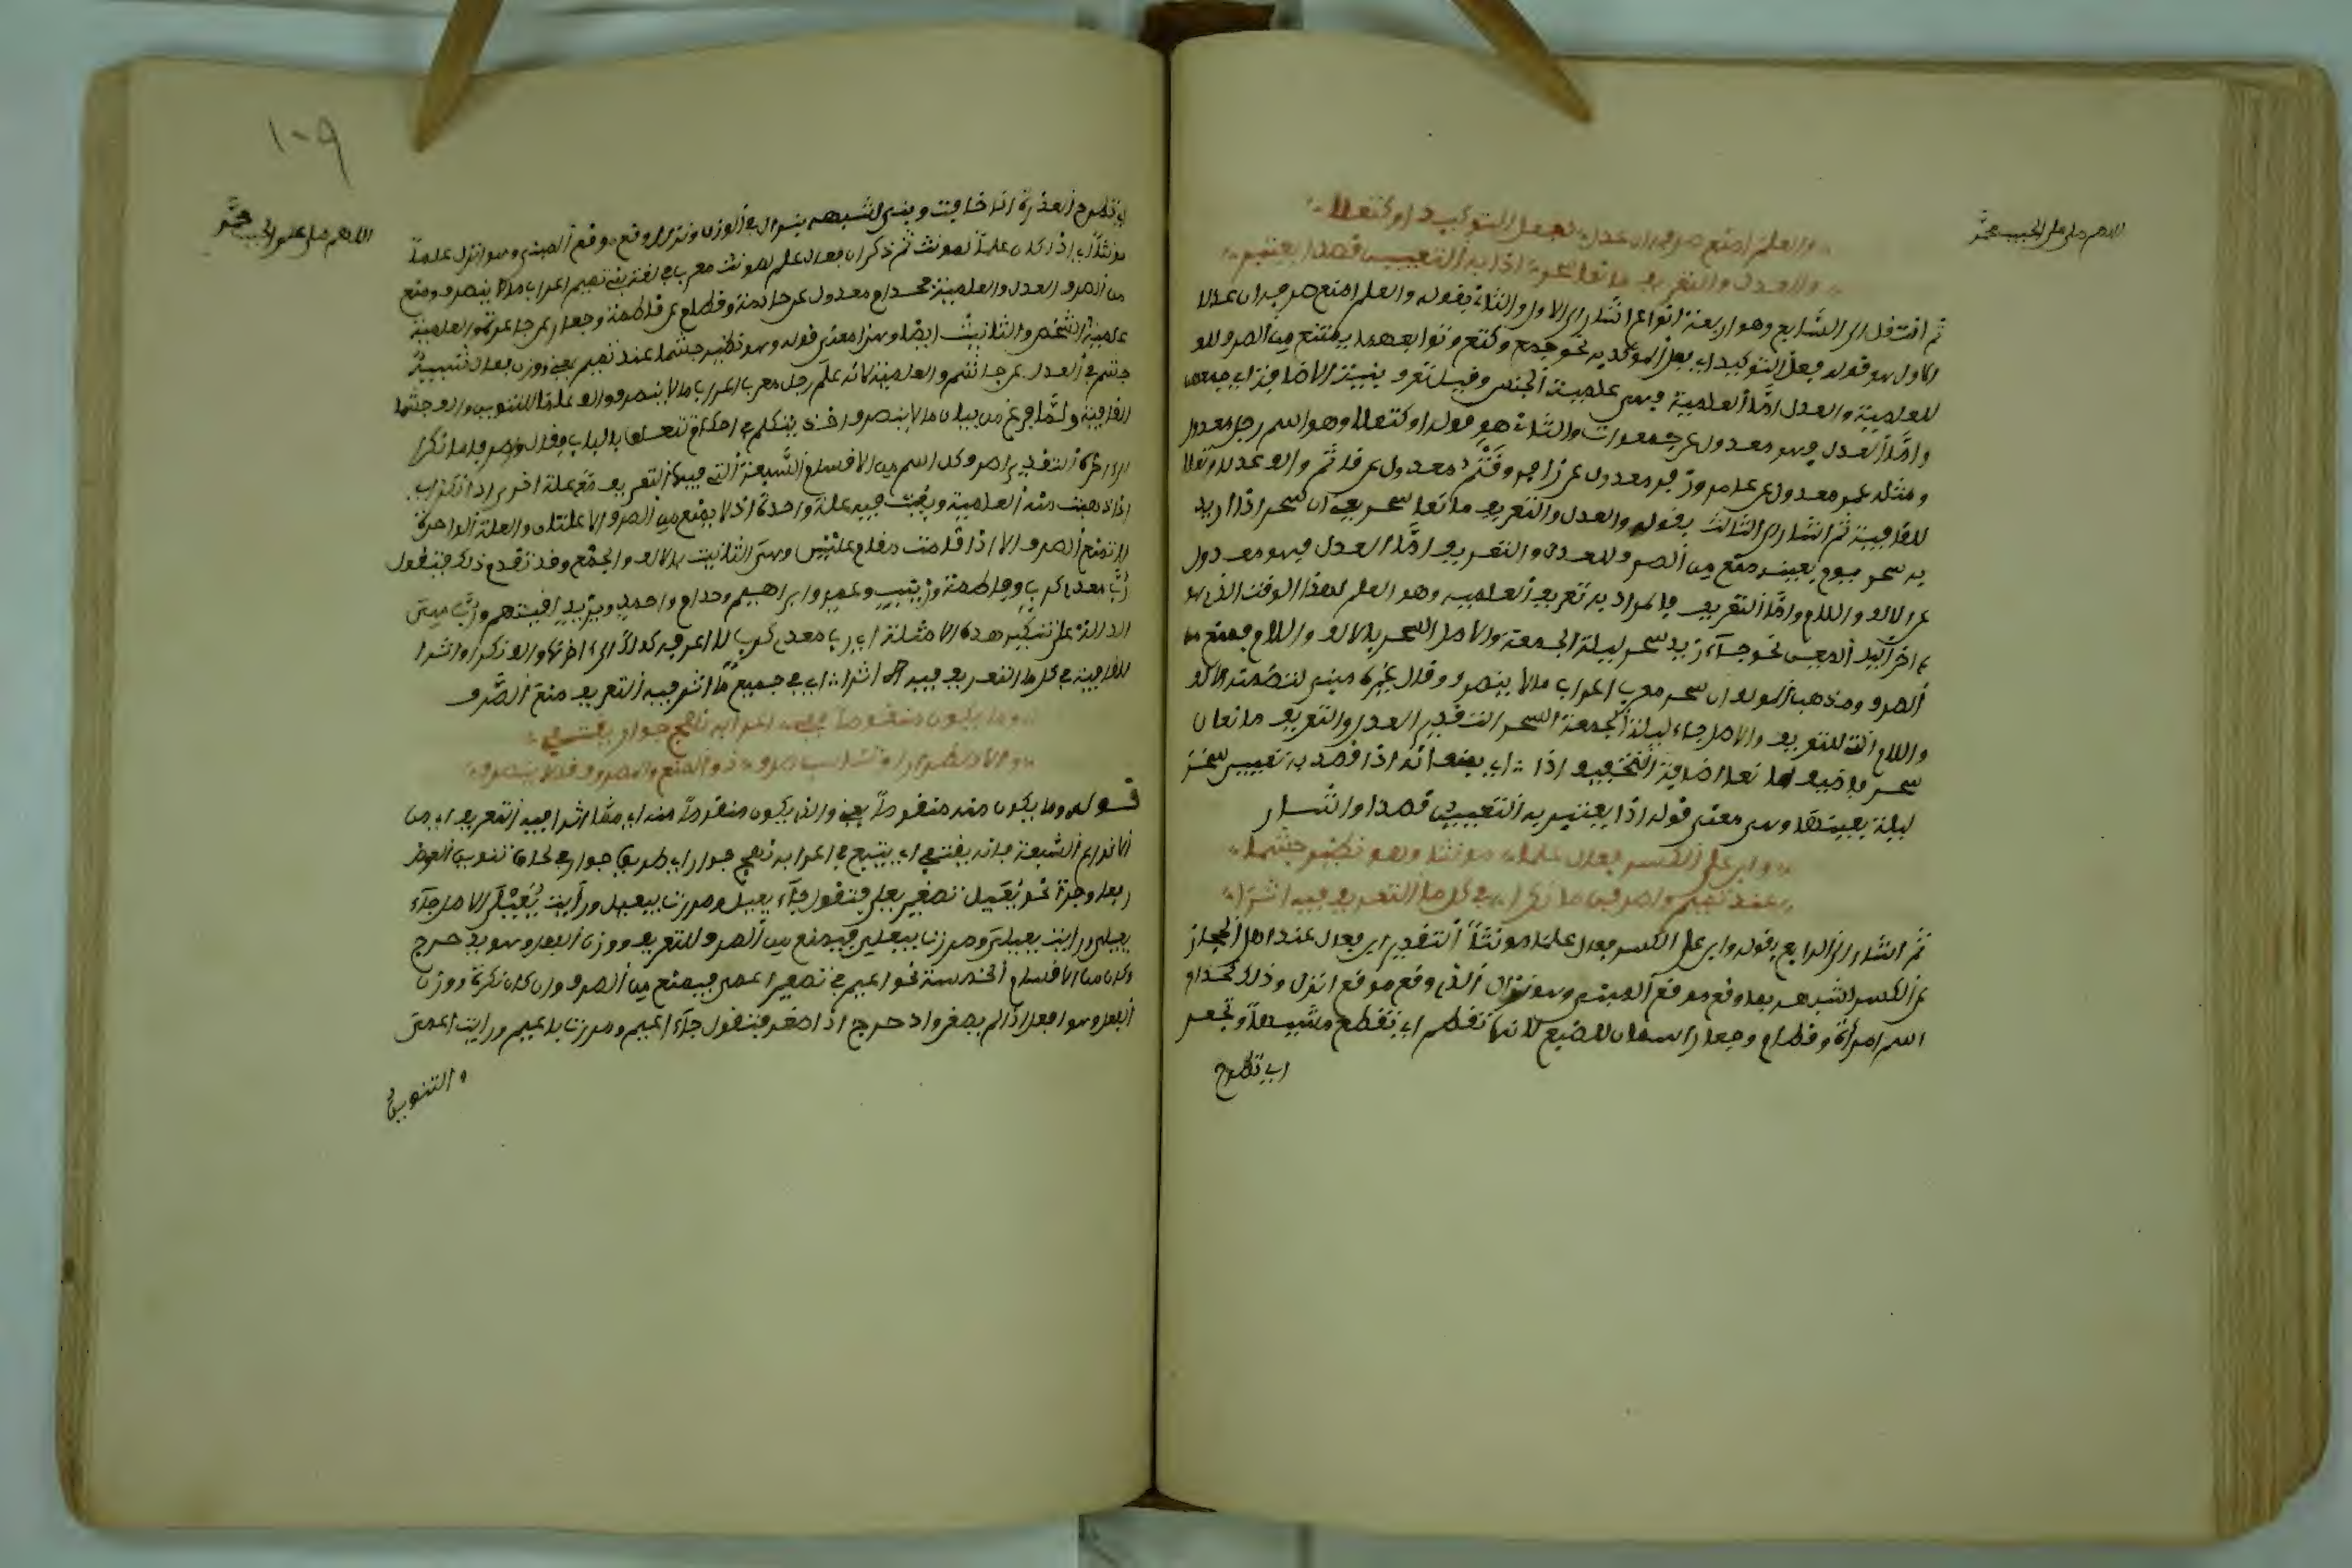 اللهم صل على الحبيب محمد
والعلم امنع صرفه ان عدلا كفعل التوكيد او كثعلا
والعدل والتعريف مانعا سحر اذا به التعيين قصدا يعتبر
ثم انتقل الى السابع وهو اربعة انواع اشار الى الاول والثاني بقوله والعلم امنع صرفه ان عدلا
الاول هو قوله كفعل التوكيد اي فعل الموكد به نحو جمع وكتع وتوابعهما يمتنع من الصرف
للعلمية والعدل اما العلمية فهي علمية الجنس وقيل تعرف بنية الاضافة اي جميعهن
واما العدل فهو معدول عن جمعوات والثاني هو قوله او كثعلا وهو اسم رجل معدول
ومثله عمر معدول عن عامر وزفر معدول عن زافر وقثم معدول عن قاثم والف عدلا وثعلا
للقافية ثم اشار الى الثالث بقوله والعدل والتعريف مانعا سحر يعني ان سحر اذا اريد
به سحر يوم بعينه منع من الصرف للعدل والتعريف اما العدل فهو معدول
عن الالف واللام واما التعريف فالمراد به تعريف العلمية وهو العلم لهذا الوقت الذي هو
اخر الليل المعين نحو جاء زيد سحر ليلة الجمعة والاصل السحر بالالف واللام فمنع من
الصرف ومذهب المولف ان سحر معرب اعراب ما لا ينصرف وقال غيره مبني لتضمنه الالف
واللام التي للتعريف والاصل جاء ليلة الجمعة السحر التقدير العدل والتعريف مانعان
سحر فاضيف مانعا اضافة التخفيف اذا اي يمنعانه اذا قصد به تعيين سحر
ليلة بعينها وهي معنى قوله اذا به التعيين قصدا واشار
وابن على الكسر فعال علما مونثا وهو نظير جشما
عند تميم واصرفن ما نكرا من كل ما التعريف فيه اثرا
ثم اشار الى الرابع بقوله وابن على الكسر فعال علما مونثا التقدير ابن فعال عند اهل الحجاز
على الكسر لشبهه بما وقع موقع المبني وهو نزال الذي وقع موقع انزل وذلك كحذام
اسم امراة وقطام وجعار اسمان للضبع لانها تقطم اي تقطع
اي تطرح
١٠٩
اللهم صل على الحبيب محمد
اي تطرح العذرة وبني لشبهه بنزال في الوزن ونزال وقع موقع المبني وهو انزل علما
مونثا اي اذا كان علما لمونث ثم ذكر ان فعال علم لمونث معرب في لغة بني تميم اعراب ما لا ينصرف ومنع
من الصرف العدل والعلمية فحذام معدول عن حاذمة وقطام عن قاطمة وجعار عن جاعرة والعلمية
علمية الشخص والتانيث ايضا وهذا معنى قوله وهو نظير جشما عند تميم يعني وزن فعال شبيه
جشم في العدل عن جاشم والعلمية لانه علم رجل معرب اعراب ما لا ينصرف والف علما للتنوين والف جشما
للقافية ولما فرغ من بيان ما لا ينصرف اخذ يتكلم في احكام تتعلق بالباب فقال واصرفن ما نكرا
الى اخره التقدير اصرف كل اسم من الاقسام السبعة التي فيها التعريف مع علة اخرى
اذا ذهبت منه العلمية وبقيت فيه علة واحدة اذ لا يمنع من الصرف الا علتان والعلة الواحدة
لا تمنع الصرف الا اذا قامت مقام علتين وهي التانيث بالالف والجمع وقد تقدم ذلك فتقول
رب معدي كرب وفاطمة وزينب وعمر وابراهيم وحذام واحمد ويزيد لقيتهم ورب هي
الدالة على تنكير هذه الامثلة
للقافية من كل ما التعريف فيه اثرا اي من جميع ما اثر فيه التعريف منع الصرف
وما يكون منه منقوصا ففي اعرابه نهج جوار يقتفي
ولاضطرار او تناسب صرف ذو المنع والمصروف قد لا ينصرف
قوله وما يكون منه منقوصا يعني والذي يكون منقوصا منه اي مما اثر فيه التعريف اي من
الانواع السبعة فانه يقتفي اي يتبع في اعرابه نهج جوار اي طريق جوار في لحاق تنوين العوض
رفعا وجرا نحو يعيل تصغير يعلى فتقول جاء يعيل ومررت بيعيل ورايت يعيلي الاصل جاء
يعيلي ورايت يعيلي ومررت بيعيلي فيمنع من الصرف للتعريف ووزن الفعل وهو يدحرج
وكان من الاقسام الخمسة نحو اعيم في تصغير اعمى فيمنع من الصرف وان كان نكرة ووزن
الفعل وهو افعل اذا لم يصغر وادحرج اذا صغر فتقول جاء اعيم ومررت باعيم ورايت اعيمي
والتنوين